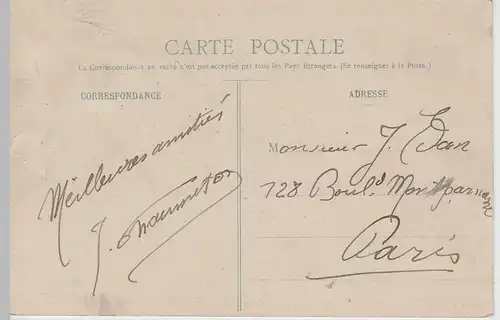 CARTE POSTALE
La Correspondance au recto n'est pas acceptée par tous les Pays Étrangers. (Se renseigner à la Poste.)
CORRESPONDANCE
ADRESSE
Meilleures amitiés
J.
Monsieur J.
128 Boulᵈ Montparnasse
Paris